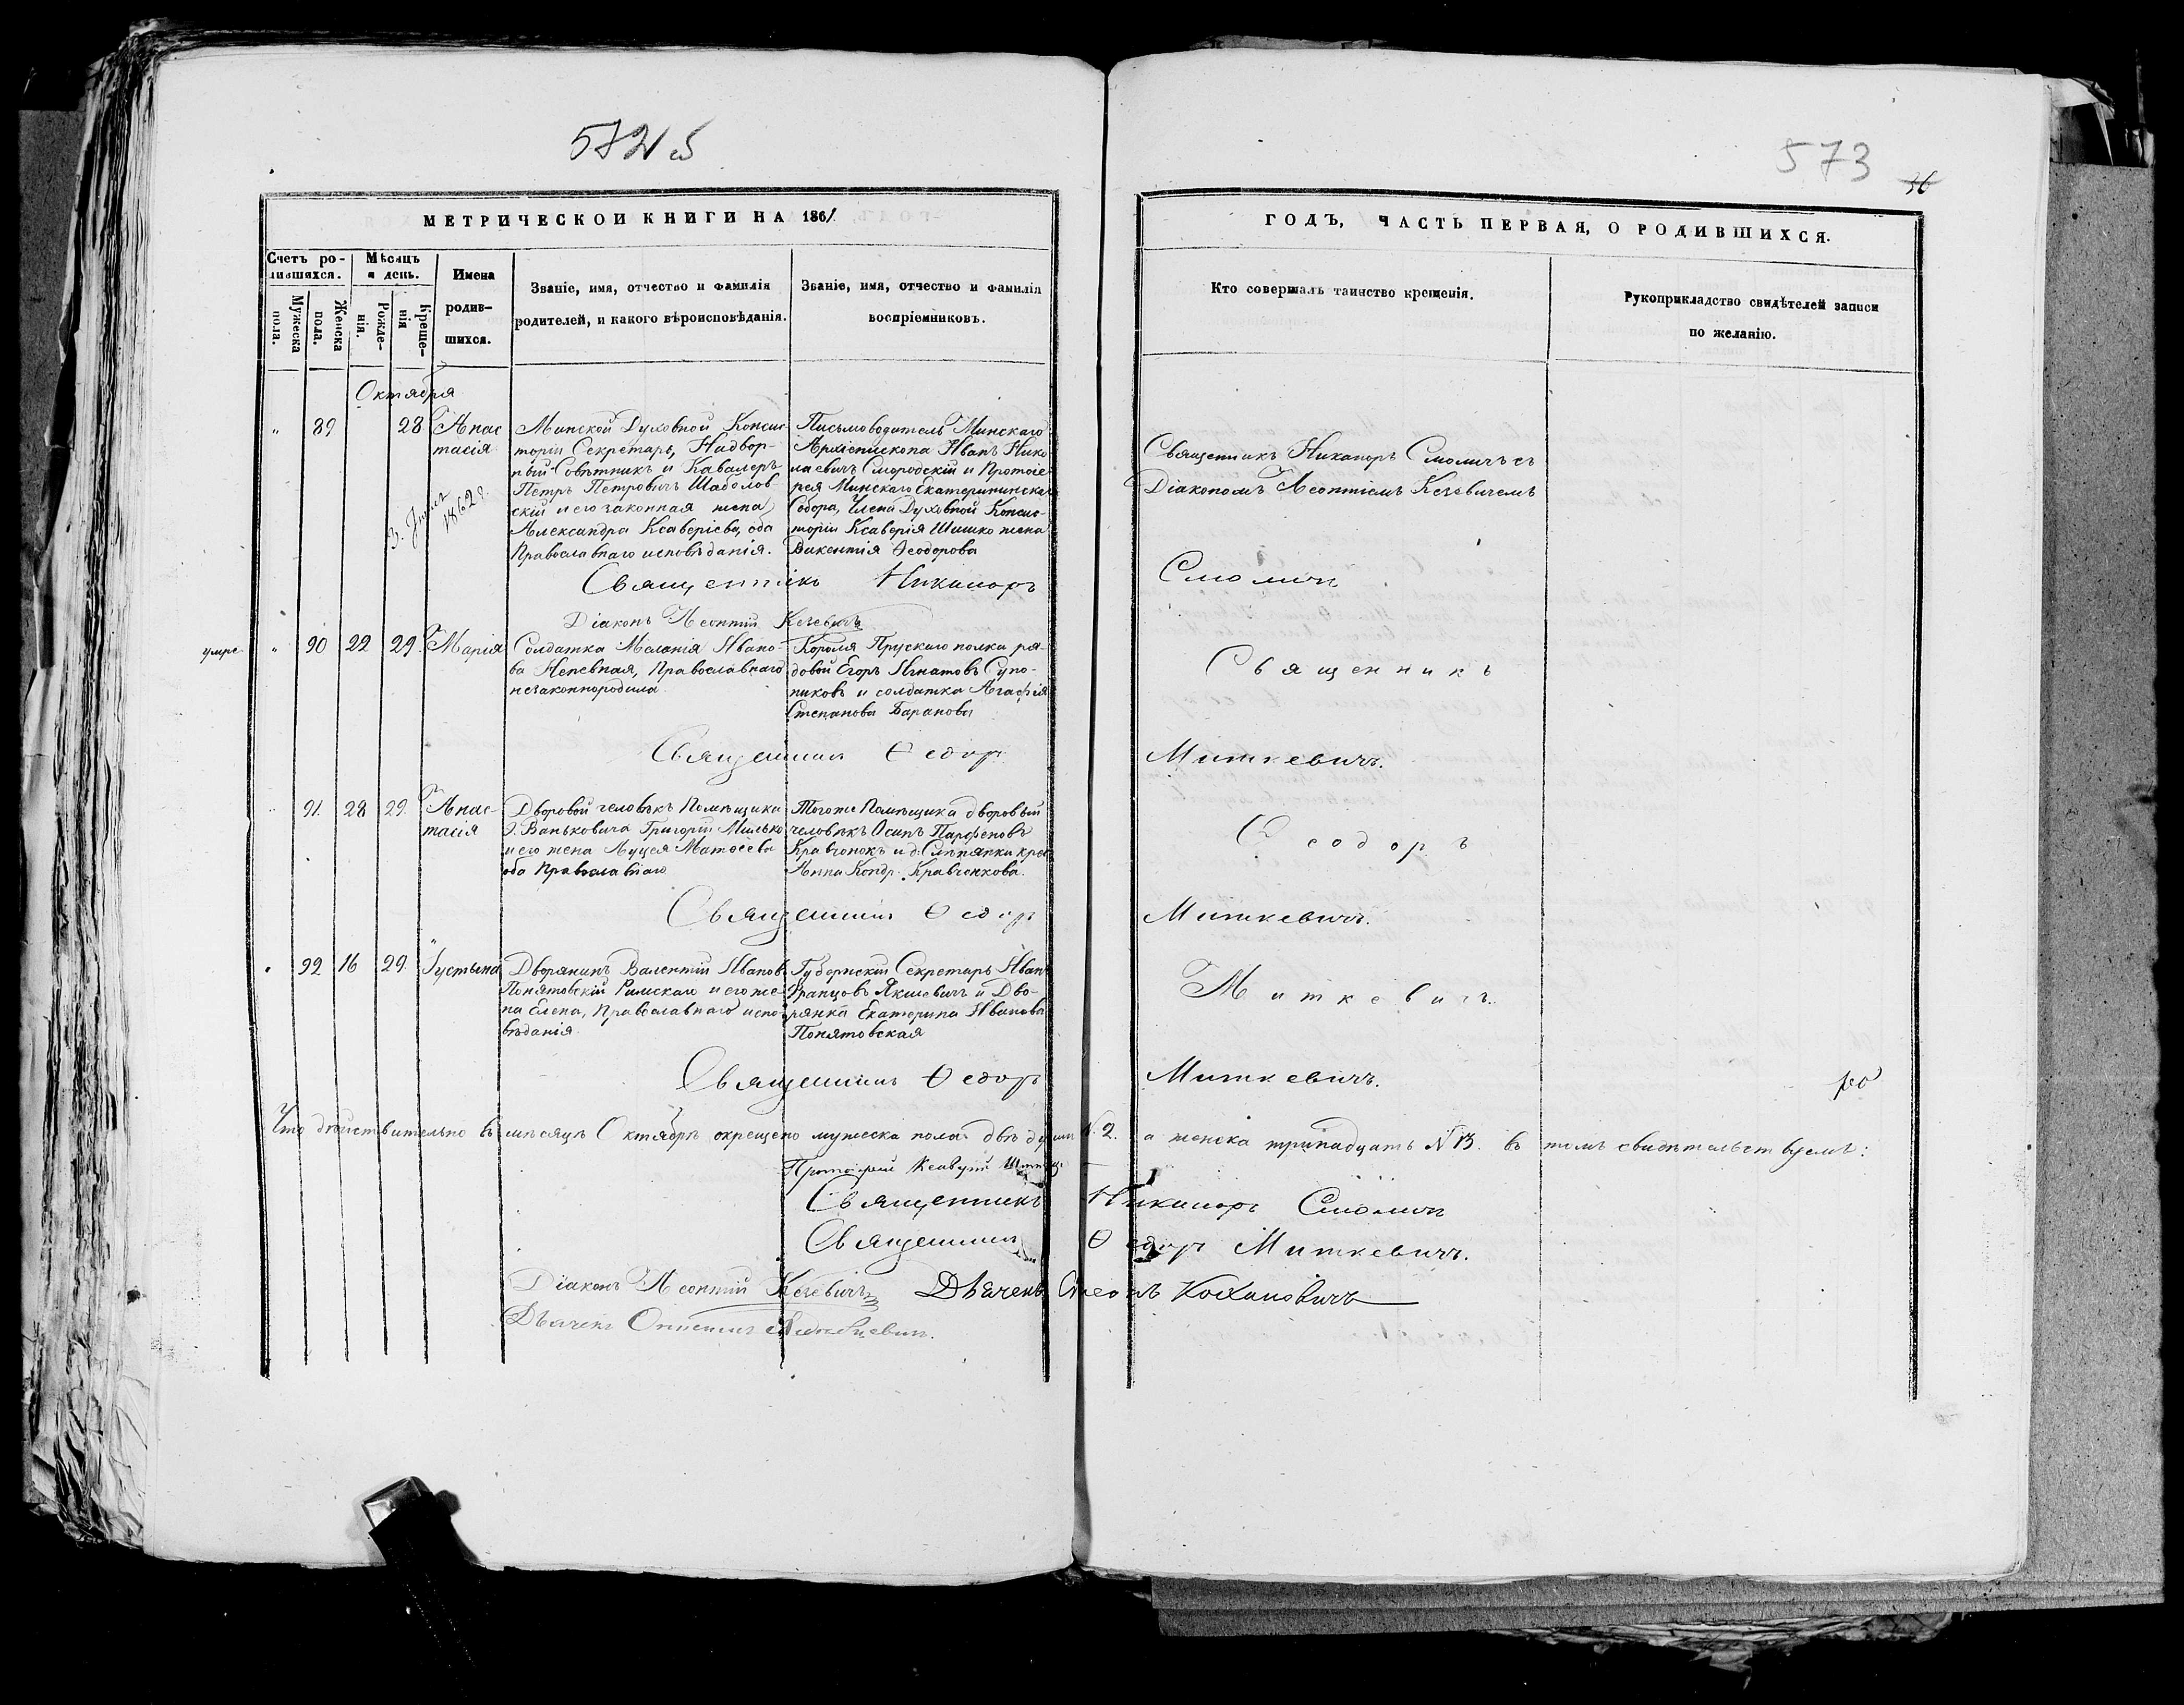 573
МЕТРИЧЕСКОЙ КНИГИ НА 1861.
ГОДЪ, ЧАСТЬ ПЕРВАЯ, О РОДИВШИХСЯ.
Счетъ родившихся.
Мужеска пола.
Женска пола.
Мѣсяцъ и день.
Рожденія.
Крещенія
Имена родившихся.
Званіе, имя, отчество и фамилія
родителей, и какого вѣроисповѣданія.
Званіе, имя, отчество и фамилія
воспріемниковъ.
Кто совершалъ таинство крещенія.
Рукоприкладство свидѣтелей записи
по желанію.
Октября
89 28
Анастасія
Минской Духовной Консисторіи
Секретарь, Надворный
Совѣтникъ и Кавалеръ
Петръ Петровичъ
и его законная жена
Александра Ксаверіева, оба
Православнаго исповѣданія.
Письмоводитель Минскаго
Архіепископа Иванъ Николаевичъ
Смородскій и Протоіерея
Минскаго Екатерининскаго
Собора, Члена Духовной Консисторіи
Ксаверія Шишко жена
Викентія Ѳеодорова
Священникъ Никаноръ Смоличъ съ
Діакономъ Леонтіемъ
1862 г.
Священникъ Никаноръ Смолич
Діаконъ Леонтій
умре
90 22 29
Марія
Солдатка Меланія Иванова
Православнаго
незаконнородила
Короля Прускаго полка рядовой
Егоръ Игнатовъ
и солдатка Агафія
Степанова Баранова
Священникъ
Священникъ Ѳедор Миткевичъ.
91. 28 29.
Анастасія
Дворовой человѣкъ Помѣщика
Э. Ваньковича Григорій Милько
и его жена Луцея Матѳеева
оба Православнаго
Тогоже Помѣщика дворовый
человѣкъ Осипъ Парфеновъ
Кравчонокъ и д. Слѣпянки крес
Анна Кондр. Кравченкова.
Ѳеодоръ
Священникъ Ѳедоръ Миткевичъ.
92 16 29.
Іустына
Дворянинъ Валентій Иванов
Понятовскій Римскаго и его жена
Елена, Православнаго исповѣданія
Губернскій Секретарь Иванъ
Францовъ Якшевичъ и Дворянка
Екатерина Иванова
Понятовская
Миткевичъ.
Священникъ Ѳедоръ Миткевичъ.
Что дѣйствительно въ мѣсяцѣ Октябрѣ окрещено мужеска пола двѣ души N. 2. а женска тринадцать N 13. въ томъ свидѣтельствуемъ:
Протоіерей
Священникъ Никаноръ Смолич
Священникъ Ѳедоръ Миткевичъ.
Діаконъ Леонтій
Дьячекъ Симеонъ Кохановичъ
Дьячекъ